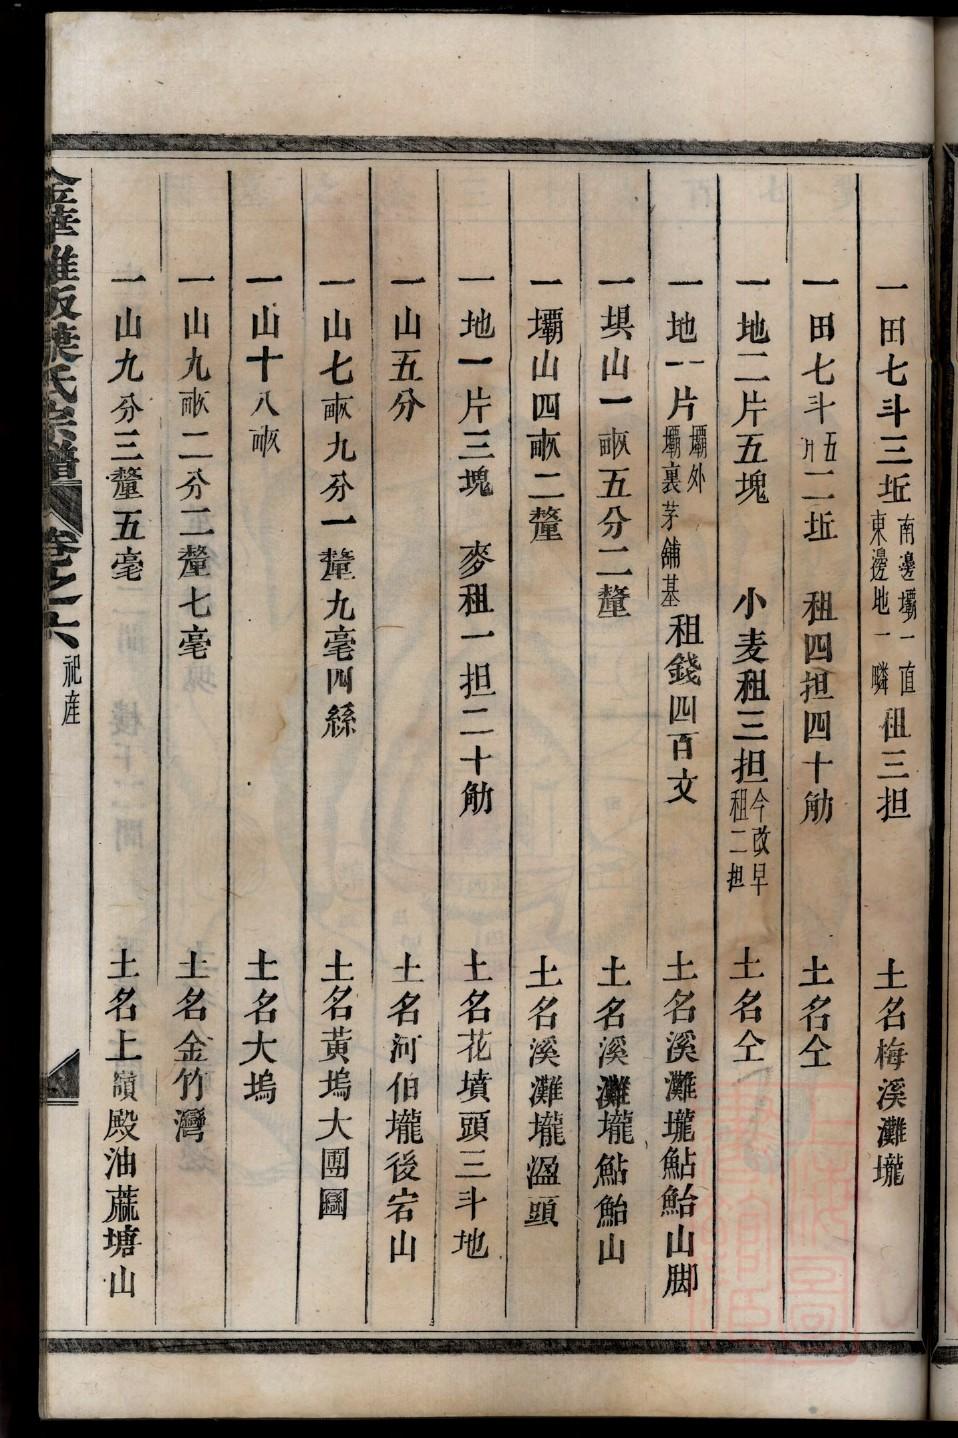 一田七斗三坵南邊壩一直東邊地一瞵租三担 土名梅溪灘壠
一田七斗五升二坵 租四担四十觔 土名仝
一地二片五塊 小麦租三担今改早租二担 土名仝
一地一片壩外壩裏茅舖基租錢四百文 土名溪灘壠鮎鮐山脚
一垻山一畝五分二釐 土名溪灘壠鮎鮐山
一壩山四畝二釐 土名溪灘壠溋頭
一地一片三塊 麥租一担二十觔 土名花墳頭三斗地
一山五分 土名河伯壠後宕山
一山七畝九分一釐九毫四絲 土名黃塢大團圖
一山十八畝 土名大塢
一山九畝二分二釐七毫 土名金竹灣
一山九分三釐五毫 土名上嶺殿油蔴塘山
金華雅畈葉氏宗譜 卷之六 祀產